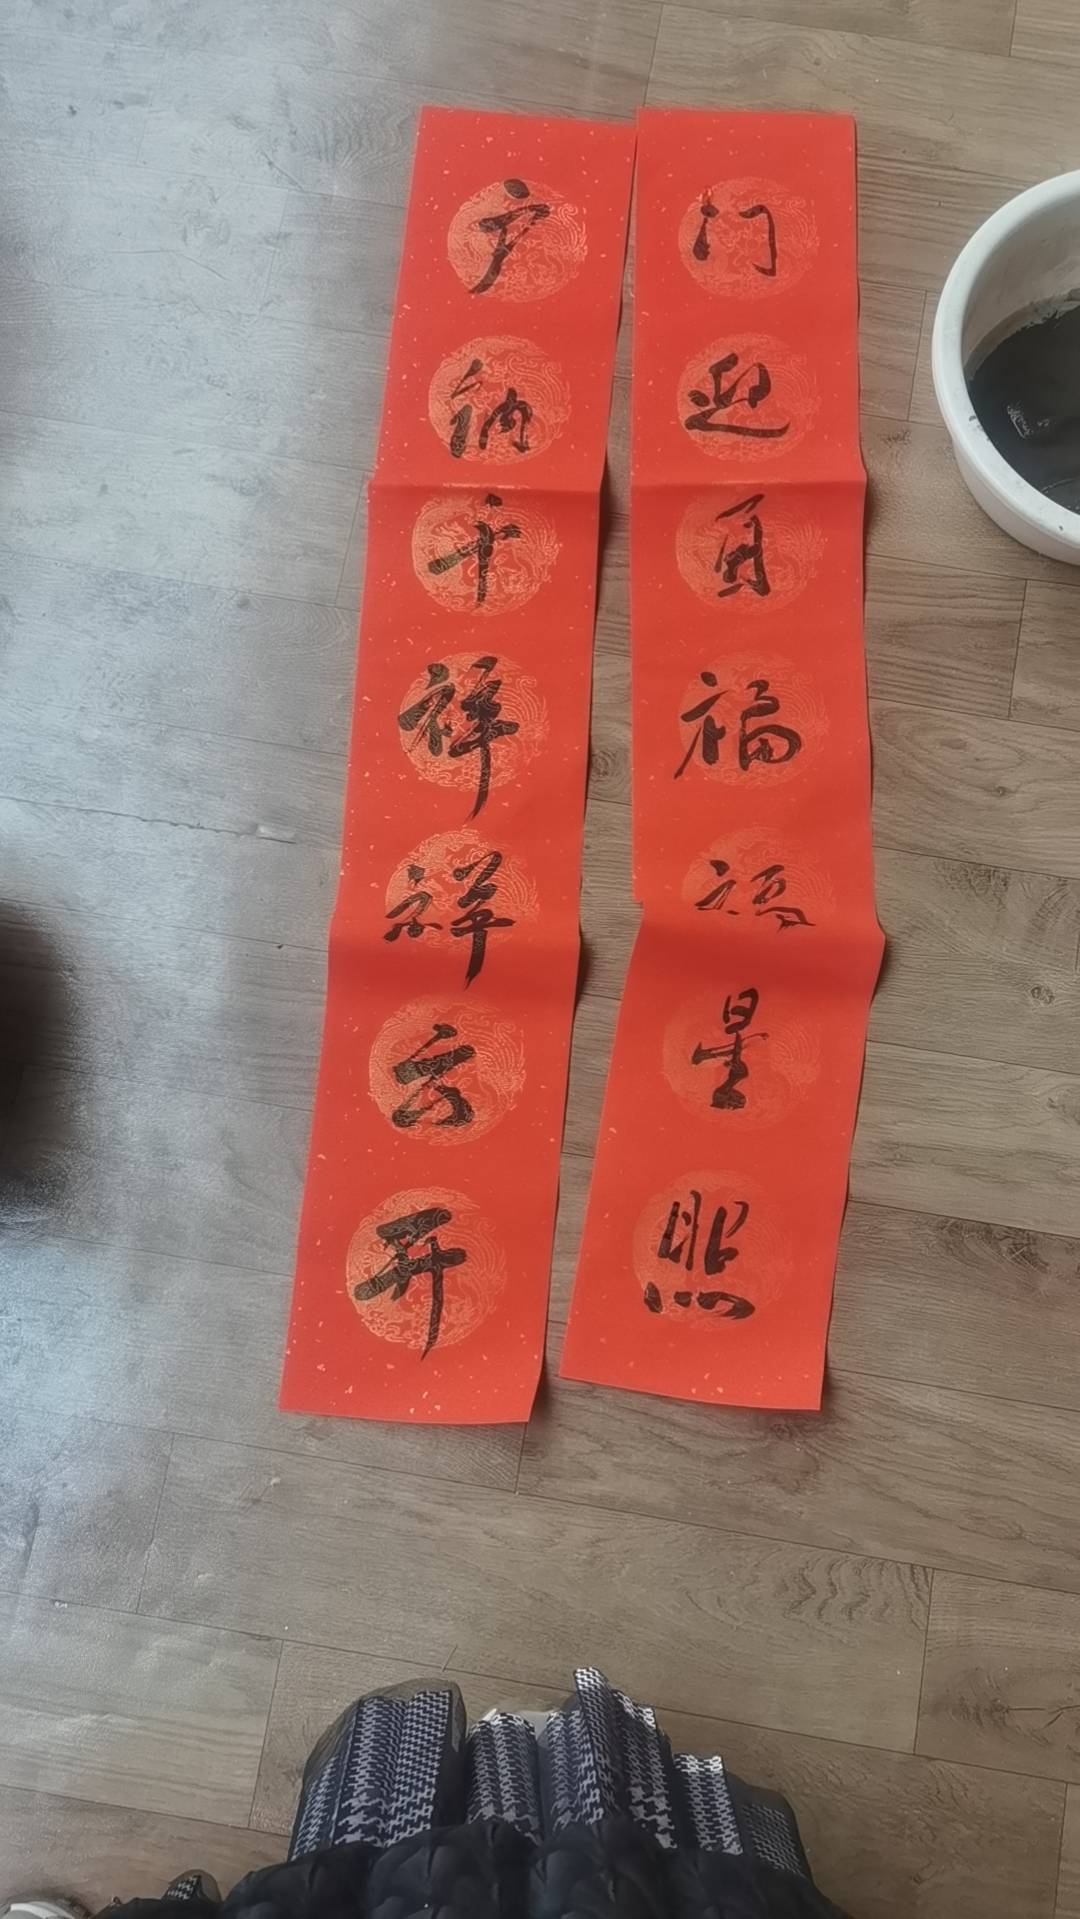 门迎百福福星照
户纳千祥祥云开